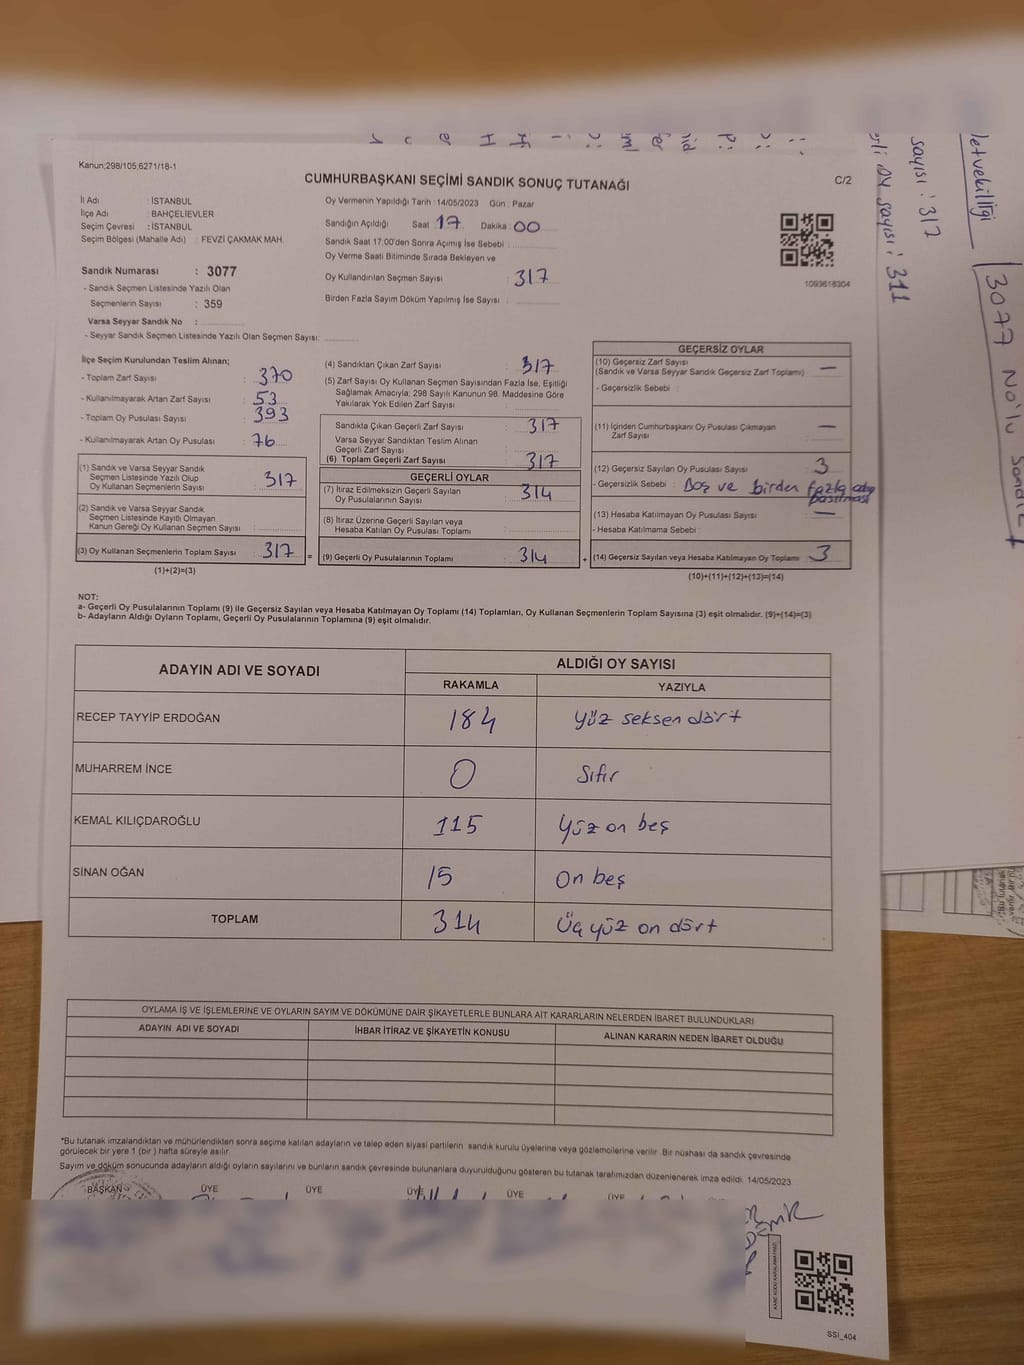 Kanun;298/105;6271/18-1
CUMHURBAŞKANI SEÇİMİ SANDIK SONUÇ TUTANAĞI
C/2
İl Adı : İSTANBUL
İlçe Adı : BAHÇELİEVLER
Seçim Çevresi : İSTANBUL
Seçim Bölgesi (Mahalle Adı) : FEVZİ ÇAKMAK MAH.
Sandık Numarası : 3077
- Sandık Seçmen Listesinde Yazılı Olan
Seçmenlerin Sayısı : 359
Varsa Seyyar Sandık No :
- Seyyar Sandık Seçmen Listesinde Yazılı Olan Seçmen Sayısı:
Oy Vermenin Yapıldığı Tarih :14/05/2023 Gün : Pazar
Sandığın Açıldığı Saat 17 Dakika 00
Sandık Saat 17:00'den Sonra Açımış İse Sebebi :
Oy Verme Saati Bitiminde Sırada Bekleyen ve
Oy Kullandırılan Seçmen Sayısı : 317
Birden Fazla Sayım Döküm Yapılmış İse Sayısı :
1093618304
İlçe Seçim Kurulundan Teslim Alınan;
- Toplam Zarf Sayısı : 370
- Kullanılmayarak Artan Zarf Sayısı : 53
- Toplam Oy Pusulası Sayısı : 393
- Kullanılmayarak Artan Oy Pusulası : 76
(1) Sandık ve Varsa Seyyar Sandık
Seçmen Listesinde Yazılı Olup
Oy Kullanan Seçmenlerin Sayısı : 317
(2) Sandık ve Varsa Seyyar Sandık
Seçmen Listesinde Kayıtlı Olmayan
Kanun Gereği Oy Kullanan Seçmen Sayısı :
(3) Oy Kullanan Seçmenlerin Toplam Sayısı : 317
(1)+(2)=(3)
(4) Sandıktan Çıkan Zarf Sayısı : 317
(5) Zarf Sayısı Oy Kullanan Seçmen Sayısından Fazla İse, Eşitliği
Sağlamak Amacıyla; 298 Sayılı Kanunun 98. Maddesine Göre
Yakılarak Yok Edilen Zarf Sayısı :
Sandıkta Çıkan Geçerli Zarf Sayısı : 317
Varsa Seyyar Sandıktan Teslim Alınan
Geçerli Zarf Sayısı :
(6) Toplam Geçerli Zarf Sayısı : 317
GEÇERLİ OYLAR
(7) İtiraz Edilmeksizin Geçerli Sayılan
Oy Pusulalarının Sayısı : 314
(8) İtiraz Üzerine Geçerli Sayılan veya
Hesaba Katılan Oy Pusulası Toplamı :
= (9) Geçerli Oy Pusulalarının Toplamı : 314 +
GEÇERSİZ OYLAR
(10) Geçersiz Zarf Sayısı
(Sandık ve Varsa Seyyar Sandık Geçersiz Zarf Toplamı) : —
- Geçersizlik Sebebi :
(11) İçinden Cumhurbaşkanı Oy Pusulası Çıkmayan
Zarf Sayısı : —
(12) Geçersiz Sayılan Oy Pusulası Sayısı : 3
- Geçersizlik Sebebi : Boş ve birden fazla adaya
basılması
(13) Hesaba Katılmayan Oy Pusulası Sayısı : —
- Hesaba Katılmama Sebebi :
(14) Geçersiz Sayılan veya Hesaba Katılmayan Oy Toplamı : 3
(10)+(11)+(12)+(13)=(14)
NOT:
a- Geçerli Oy Pusulalarının Toplamı (9) ile Geçersiz Sayılan veya Hesaba Katılmayan Oy Toplamı (14) Toplamları, Oy Kullanan Seçmenlerin Toplam Sayısına (3) eşit olmalıdır. (9)+(14)=(3)
b- Adayların Aldığı Oyların Toplamı, Geçerli Oy Pusulalarının Toplamına (9) eşit olmalıdır.
ADAYIN ADI VE SOYADI
ALDIĞI OY SAYISI
RAKAMLA YAZIYLA
RECEP TAYYİP ERDOĞAN 184 Yüz seksen dört
MUHARREM İNCE 0 Sıfır
KEMAL KILIÇDAROĞLU 115 Yüz on beş
SİNAN OĞAN 15 On beş
TOPLAM 314 Üç yüz on dört
OYLAMA İŞ VE İŞLEMLERİNE VE OYLARIN SAYIM VE DÖKÜMÜNE DAİR ŞİKAYETLERLE BUNLARA AİT KARARLARIN NELERDEN İBARET BULUNDUKLARI
ADAYIN ADI VE SOYADI İHBAR İTİRAZ VE ŞİKAYETİN KONUSU ALINAN KARARIN NEDEN İBARET OLDUĞU
*Bu tutanak imzalandıktan ve mühürlendikten sonra seçime katılan adayların ve talep eden siyasi partilerin sandık kurulu üyelerine veya gözlemcilerine verilir. Bir nüshası da sandık çevresinde
görülecek bir yere 1 (bir ) hafta süreyle asılır.
Sayım ve döküm sonucunda adayların aldığı oyların sayılarını ve bunların sandık çevresinde bulunanlara duyurulduğunu gösteren bu tutanak tarafımızdan düzenlenerek imza edildi. 14/05/2023
BAŞKAN ÜYE ÜYE ÜYE ÜYE ÜYE
SSİ_404
3077 No'lu Sandık
letvekilligi
sayısı : 317
erli oy sayısı : 311